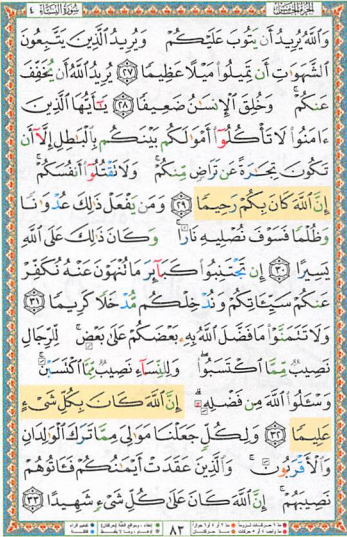 الجزء الخامس سورة النساء ٤
وَاللَّهُ يُرِيدُ أَن يَتُوبَ عَلَيْكُمْ وَيُرِيدُ الَّذِينَ يَتَّبِعُونَ
الشَّهَوَاتِ أَن تَمِيلُوا مَيْلًا عَظِيمًا ﴿٢٧﴾ يُرِيدُ اللَّهُ أَن يُخَفِّفَ
عَنكُمْ ۚ وَخُلِقَ الْإِنسَانُ ضَعِيفًا ﴿٢٨﴾ يَا أَيُّهَا الَّذِينَ
ءَامَنُوا لَا تَأْكُلُوا أَمْوَالَكُم بَيْنَكُم بِالْبَاطِلِ إِلَّا أَن
تَكُونَ تِجَارَةً عَن تَرَاضٍ مِّنكُمْ ۚ وَلَا تَقْتُلُوا أَنفُسَكُمْ ۚ
إِنَّ اللَّهَ كَانَ بِكُمْ رَحِيمًا ﴿٢٩﴾ وَمَن يَفْعَلْ ذَٰلِكَ عُدْوَانًا
وَظُلْمًا فَسَوْفَ نُصْلِيهِ نَارًا ۚ وَكَانَ ذَٰلِكَ عَلَى اللَّهِ
يَسِيرًا ﴿٣٠﴾ إِن تَجْتَنِبُوا كَبَائِرَ مَا تُنْهَوْنَ عَنْهُ نُكَفِّرْ
عَنكُمْ سَيِّئَاتِكُمْ وَنُدْخِلْكُم مُّدْخَلًا كَرِيمًا ﴿٣١﴾
وَلَا تَتَمَنَّوْا مَا فَضَّلَ اللَّهُ بِهِ بَعْضَكُمْ عَلَىٰ بَعْضٍ ۚ لِّلرِّجَالِ
نَصِيبٌ مِّمَّا اكْتَسَبُوا ۖ وَلِلنِّسَاءِ نَصِيبٌ مِّمَّا اكْتَسَبْنَ ۚ
وَسْـَٔلُوا اللَّهَ مِن فَضْلِهِ ۗ إِنَّ اللَّهَ كَانَ بِكُلِّ شَيْءٍ
عَلِيمًا ﴿٣٢﴾ وَلِكُلٍّ جَعَلْنَا مَوَالِيَ مِمَّا تَرَكَ الْوَالِدَانِ
وَالْأَقْرَبُونَ ۚ وَالَّذِينَ عَقَدَتْ أَيْمَانُكُمْ فَـَٔاتُوهُمْ
نَصِيبَهُمْ ۚ إِنَّ اللَّهَ كَانَ عَلَىٰ كُلِّ شَيْءٍ شَهِيدًا ﴿٣٣﴾
٨٣